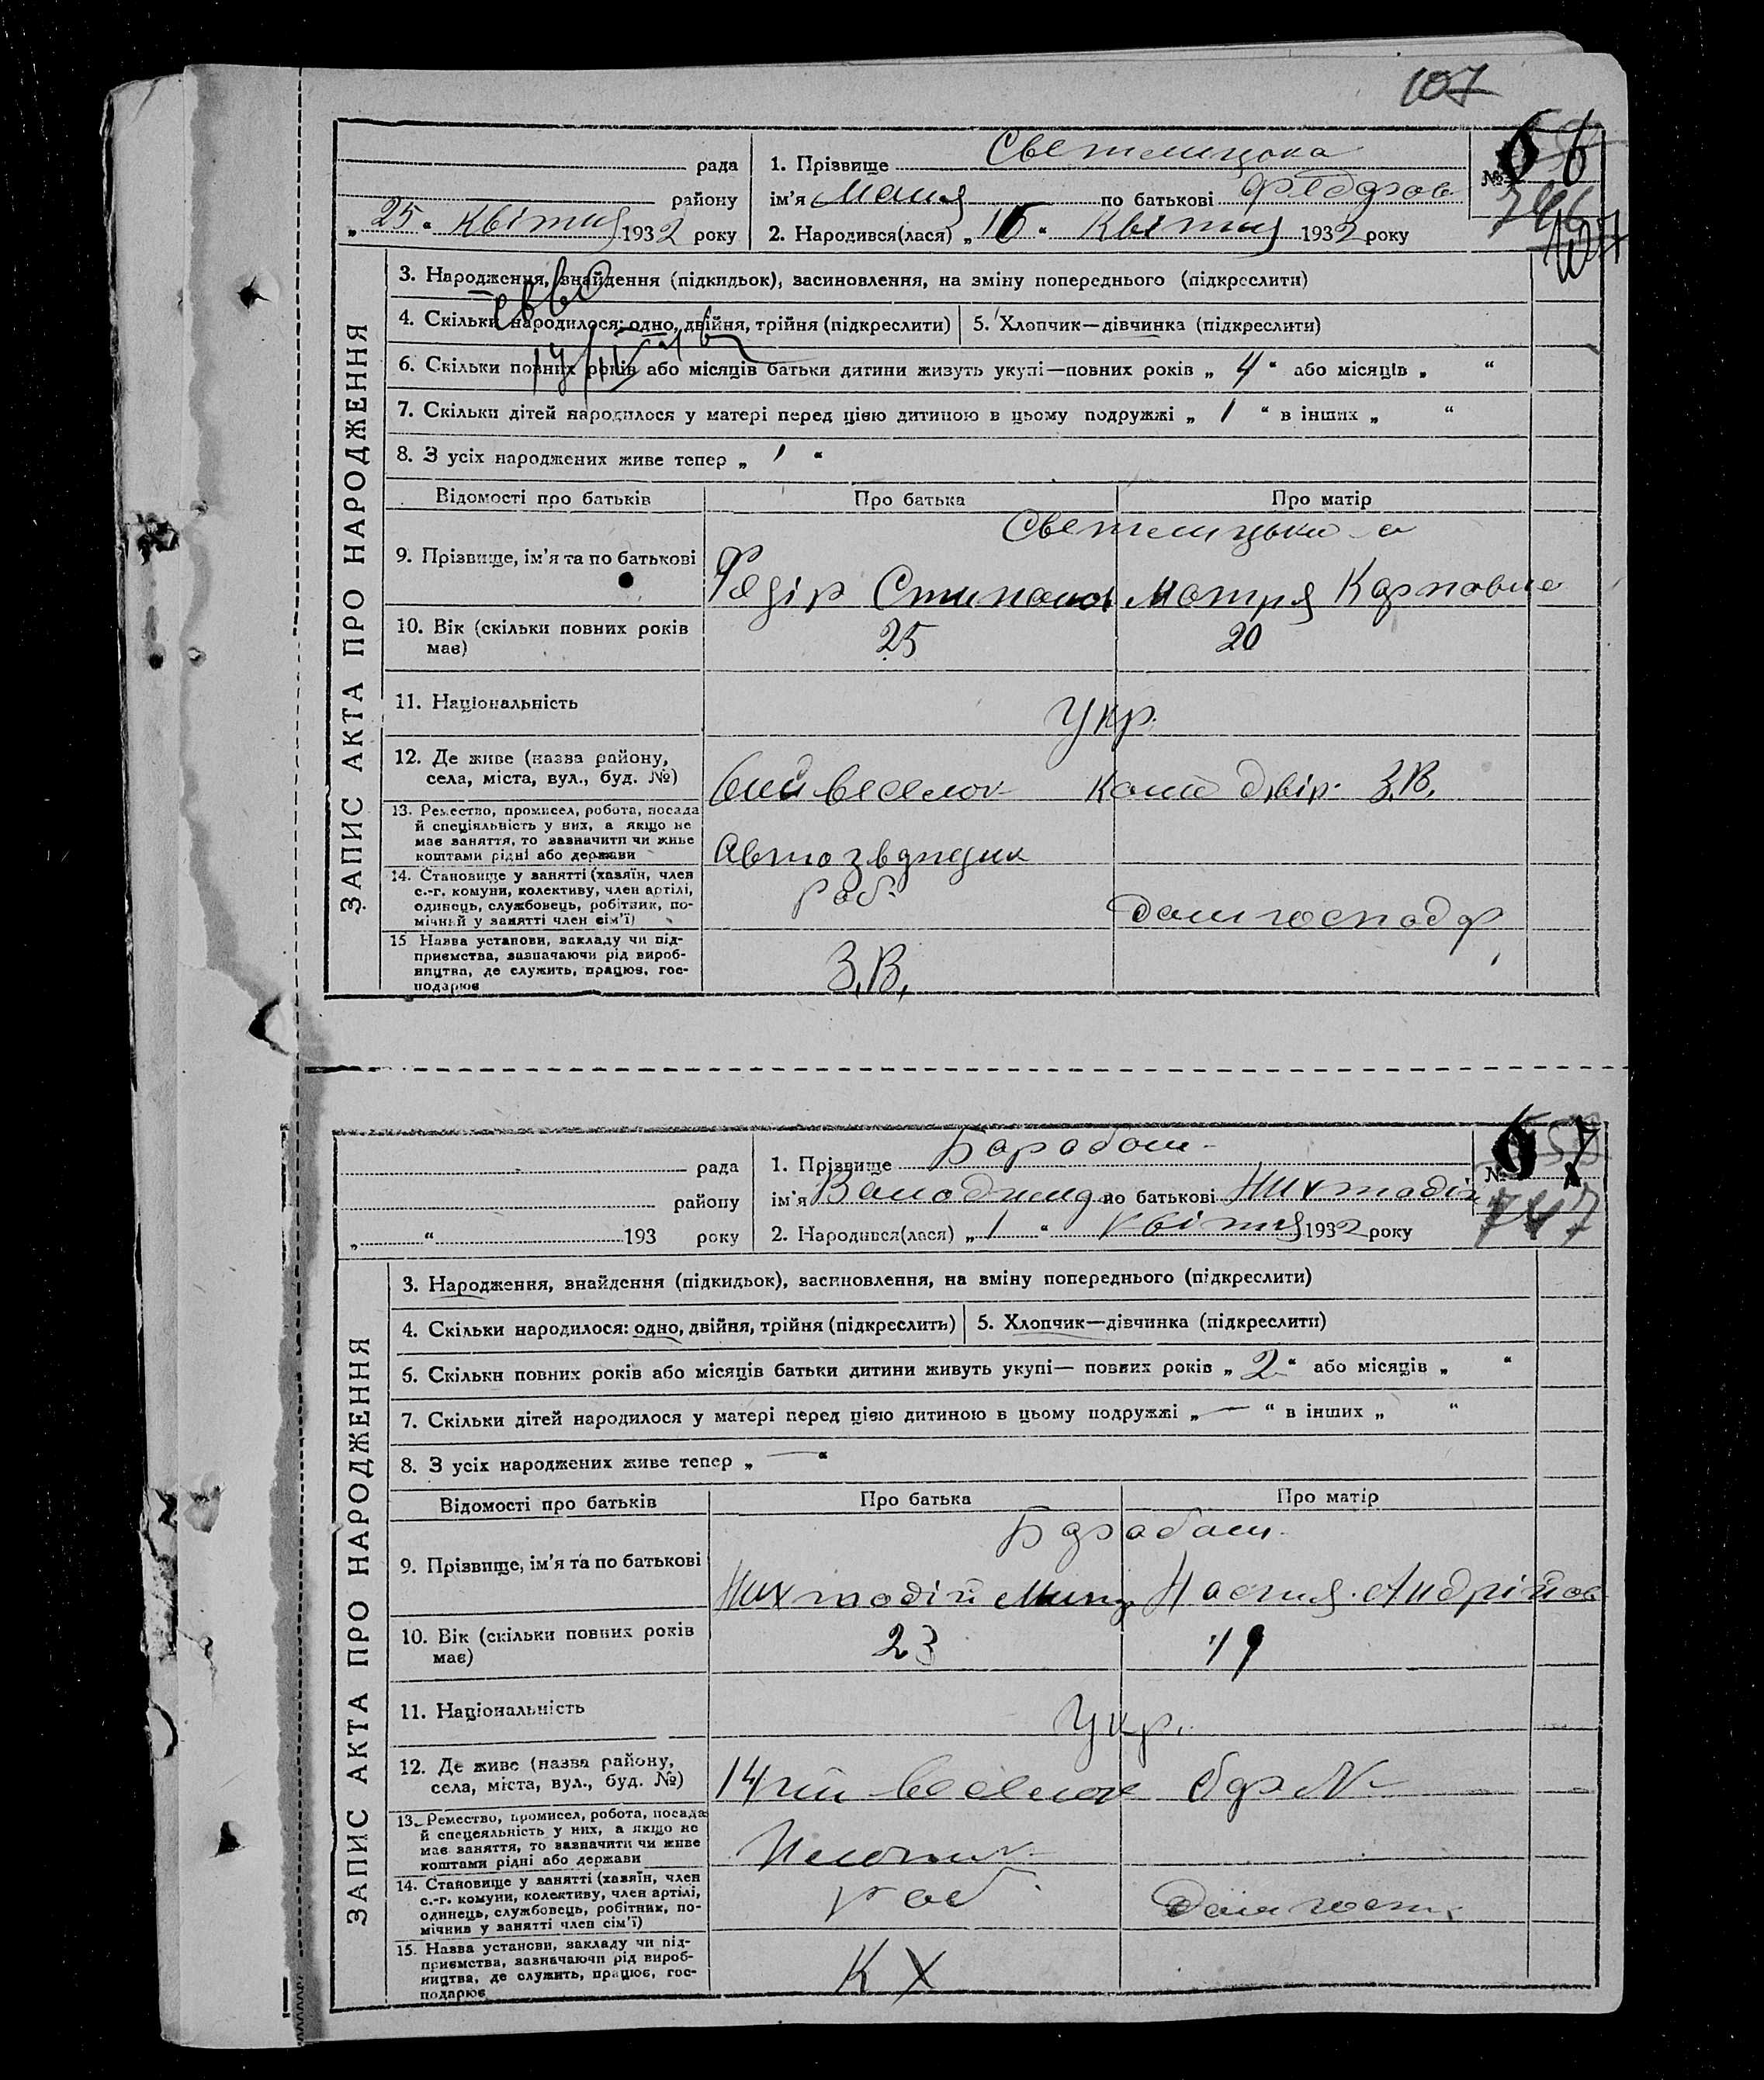 107
рада
району
„ 25 “ Квітня 1932 року
1. Прізвище Светлицька
ім'я Маня по батькові Федоров
2. Народився(лася) „ 16 “ Квітня 1932 року
№ 66
746
107
ЗАПИС АКТА ПРО НАРОДЖЕННЯ
3. Народження, знайдення (підкидьок), засиновлення, на зміну попереднього (підкреслити)
4. Скільки народилося: одно, двійня, трійня (підкреслити) 5. Хлопчик—дівчинка (підкреслити)
6. Скільки повних років або місяців батьки дитини живуть укупі—повних років „ 4 “ або місяців „ “
7. Скільки дітей народилося у матері перед цією дитиною в цьому подружжі „ 1 “ в інших „ “
8. З усіх народжених живе тепер „ 1 “
Відомості про батьків Про батька Про матір
Светлицьки а
9. Прізвище, ім'я та по батькові
Федір Степанов Мотря Карповна
10. Вік (скільки повних років має) 25 20
11. Національність Укр.
12. Де живе (назва району, села, міста, вул., буд. №)
веселок двір. З.В.
13. Ремество, промисел, робота, посада й спеціяльність у них, а якщо не має заняття, то зазначити чи живе коштами рідні або держави
14. Становище у занятті (хазяїн, член с.-г. комуни, колективу, член артілі, одинець, службовець, робітник, помічний у занятті член сім'ї)
роб. Дом господар
15 Назва установи, закладу чи підприємства, зазначаючи рід виробництва, де служить, працює, господарює
З.В.
рада
району
„ “ 193 року
1. Прізвище Барабаш
ім'я Володимир по батькові
2. Народився(лася) „ 1 “ Квітня 1932 року
№ 67
747
ЗАПИС АКТА ПРО НАРОДЖЕННЯ
3. Народження, знайдення (підкидьок), засиновлення, на зміну попереднього (підкреслити)
4. Скільки народилося: одно, двійня, трійня (підкреслить) 5. Хлопчик—дівчинка (підкреслити)
6. Скільки повних років або місяців батьки дитини живуть укупі— повних років „ 2 “ або місяців „ “
7. Скільки дітей народилося у матері перед цією дитиною в цьому подружжі „ — “ в інших „ “
8. З усіх народжених живе тепер „ — “
Відомості про батьків Про батька Про матір
Барабаш
9. Прізвище, ім'я та по батькові
Настя Андрійов
10. Вік (скільки повних років має) 23 19
11. Національність Укр.
12. Де живе (назва району, села, міста, вул., буд. №)
14ий веселок бар №
13. Ремество, промисел, робота, посада й спецеяльність у них, а якщо не має заняття, то зазначити чи живе коштами рідні або держави
14. Становище у занятті (хазяїн, член с.-г. комуни, колективу, член артілі, одинець, службовець, робітник, помічнив у занятті член сім'ї)
роб. Дом госп.
15. Назва установи, закладу чи підприємства, зазначаючи рід виробництва, де служить, працює, господарює
К Х